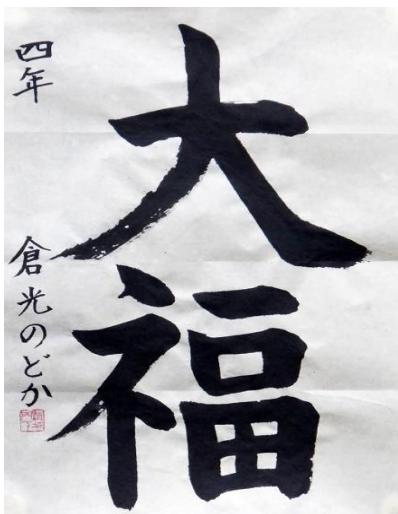 大福
四年
倉光のどか